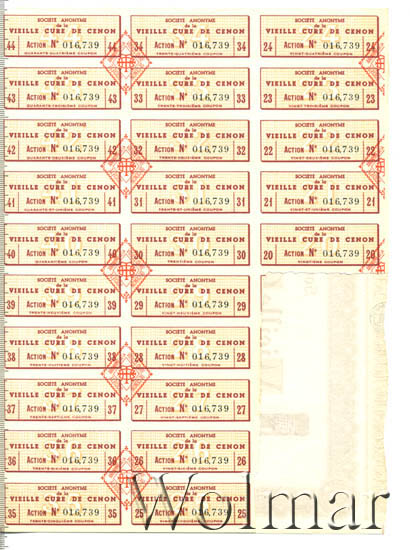 SOCIÉTÉ ANONYME
de la
VIEILLE CURE DE CENON
44 ACTION N° 016,739 44
QUARANTE-QUATRIÈME COUPON
SOCIÉTÉ ANONYME
de la
VIEILLE CURE DE CENON
34 ACTION N° 016,739 34
TRENTE-QUATRIÈME COUPON
SOCIÉTÉ ANONYME
de la
VIEILLE CURE DE CENON
24 ACTION N° 016,739 24
VINGT-QUATRIÈME COUPON
SOCIÉTÉ ANONYME
de la
VIEILLE CURE DE CENON
43 ACTION N° 016,739 43
QUARANTE-TROISIÈME COUPON
SOCIÉTÉ ANONYME
de la
VIEILLE CURE DE CENON
33 ACTION N° 016,739 33
TRENTE-TROISIÈME COUPON
SOCIÉTÉ ANONYME
de la
VIEILLE CURE DE CENON
23 ACTION N° 016,739 23
VINGT-TROISIÈME COUPON
SOCIÉTÉ ANONYME
de la
VIEILLE CURE DE CENON
42 ACTION N° 016,739 42
QUARANTE-DEUXIÈME COUPON
SOCIÉTÉ ANONYME
de la
VIEILLE CURE DE CENON
32 ACTION N° 016,739 32
TRENTE-DEUXIÈME COUPON
SOCIÉTÉ ANONYME
de la
VIEILLE CURE DE CENON
22 ACTION N° 016,739 22
VINGT-DEUXIÈME COUPON
SOCIÉTÉ ANONYME
de la
VIEILLE CURE DE CENON
41 ACTION N° 016,739 41
QUARANTE-ET-UNIÈME COUPON
SOCIÉTÉ ANONYME
de la
VIEILLE CURE DE CENON
31 ACTION N° 016,739 31
TRENTE-ET-UNIÈME COUPON
SOCIÉTÉ ANONYME
de la
VIEILLE CURE DE CENON
21 ACTION N° 016,739 21
VINGT-ET-UNIÈME COUPON
SOCIÉTÉ ANONYME
de la
VIEILLE CURE DE CENON
40 ACTION N° 016,739 40
QUARANTIÈME COUPON
SOCIÉTÉ ANONYME
de la
VIEILLE CURE DE CENON
30 ACTION N° 016,739 30
TRENTIÈME COUPON
SOCIÉTÉ ANONYME
de la
VIEILLE CURE DE CENON
20 ACTION N° 016,739 20
VINGTIÈME COUPON
SOCIÉTÉ ANONYME
de la
VIEILLE CURE DE CENON
39 ACTION N° 016,739 39
TRENTE-NEUVIÈME COUPON
SOCIÉTÉ ANONYME
de la
VIEILLE CURE DE CENON
29 ACTION N° 016,739 29
VINGT-NEUVIÈME COUPON
SOCIÉTÉ ANONYME
de la
VIEILLE CURE DE CENON
38 ACTION N° 016,739 38
TRENTE-HUITIÈME COUPON
SOCIÉTÉ ANONYME
de la
VIEILLE CURE DE CENON
28 ACTION N° 016,739 28
VINGT-HUITIÈME COUPON
SOCIÉTÉ ANONYME
de la
VIEILLE CURE DE CENON
37 ACTION N° 016,739 37
TRENTE-SEPTIÈME COUPON
SOCIÉTÉ ANONYME
de la
VIEILLE CURE DE CENON
27 ACTION N° 016,739 27
VINGT-SEPTIÈME COUPON
SOCIÉTÉ ANONYME
de la
VIEILLE CURE DE CENON
36 ACTION N° 016,739 36
TRENTE-SIXIÈME COUPON
SOCIÉTÉ ANONYME
de la
VIEILLE CURE DE CENON
26 ACTION N° 016,739 26
VINGT-SIXIÈME COUPON
SOCIÉTÉ ANONYME
de la
VIEILLE CURE DE CENON
35 ACTION N° 016,739 35
TRENTE-CINQUIÈME COUPON
SOCIÉTÉ ANONYME
de la
VIEILLE CURE DE CENON
25 ACTION N° 016,739 25
VINGT-CINQUIÈME COUPON
Wolmar